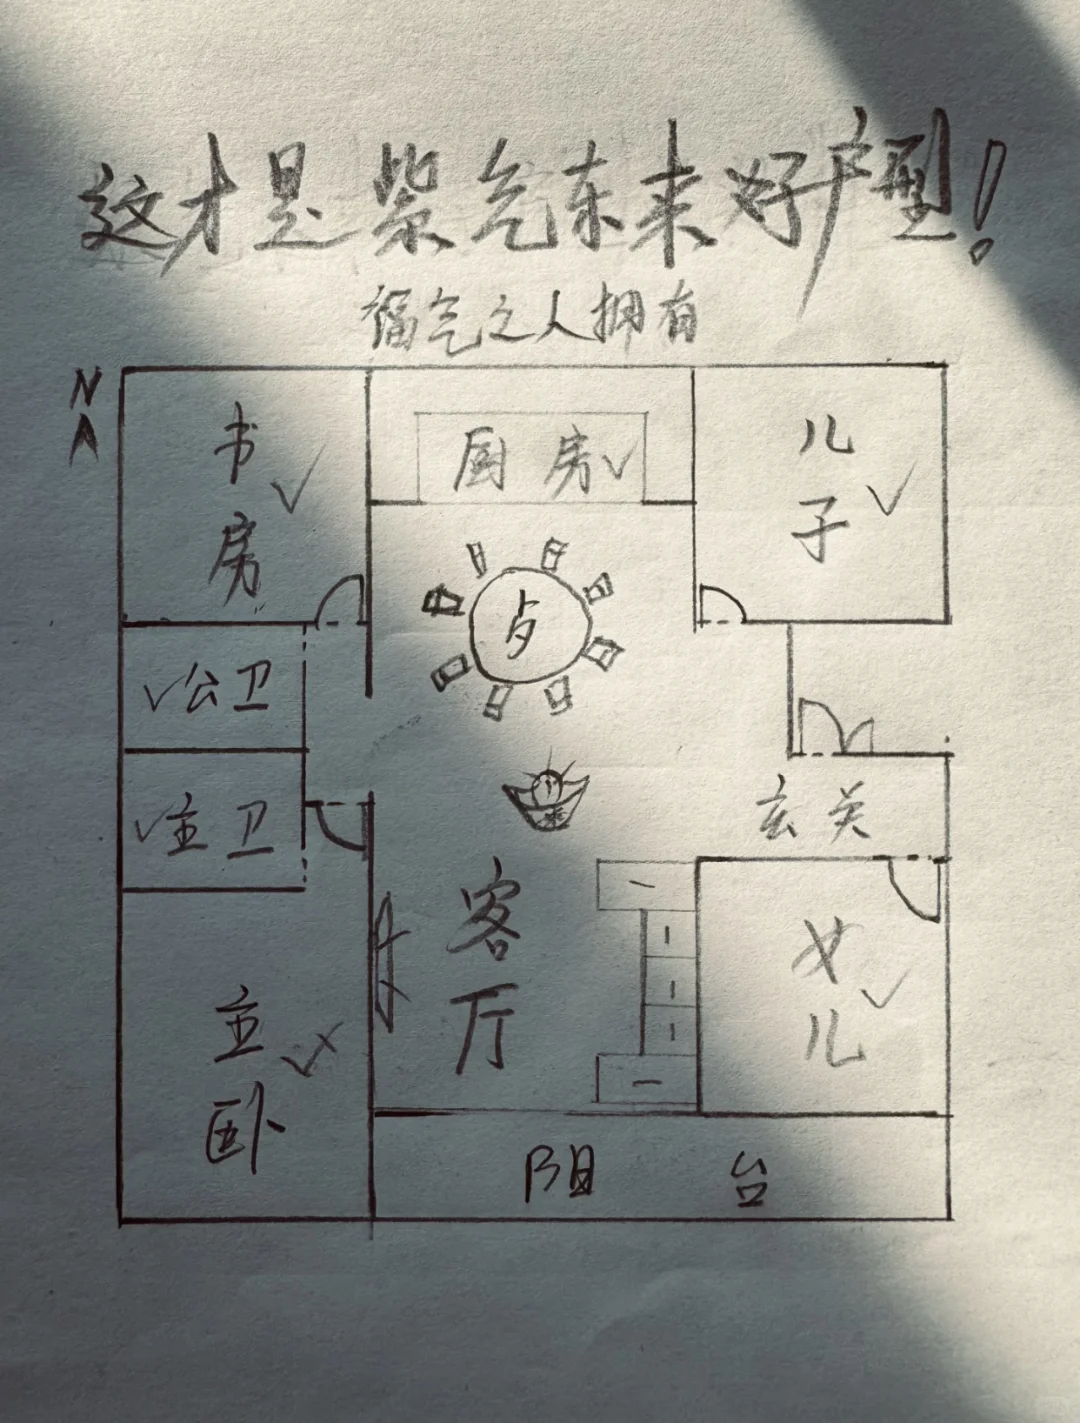 这才是紫气东来好户型!
福气之人拥有
N
书房
厨房
儿子
歺
公卫
主卫
玄关
客厅
女儿
主卧
阳台